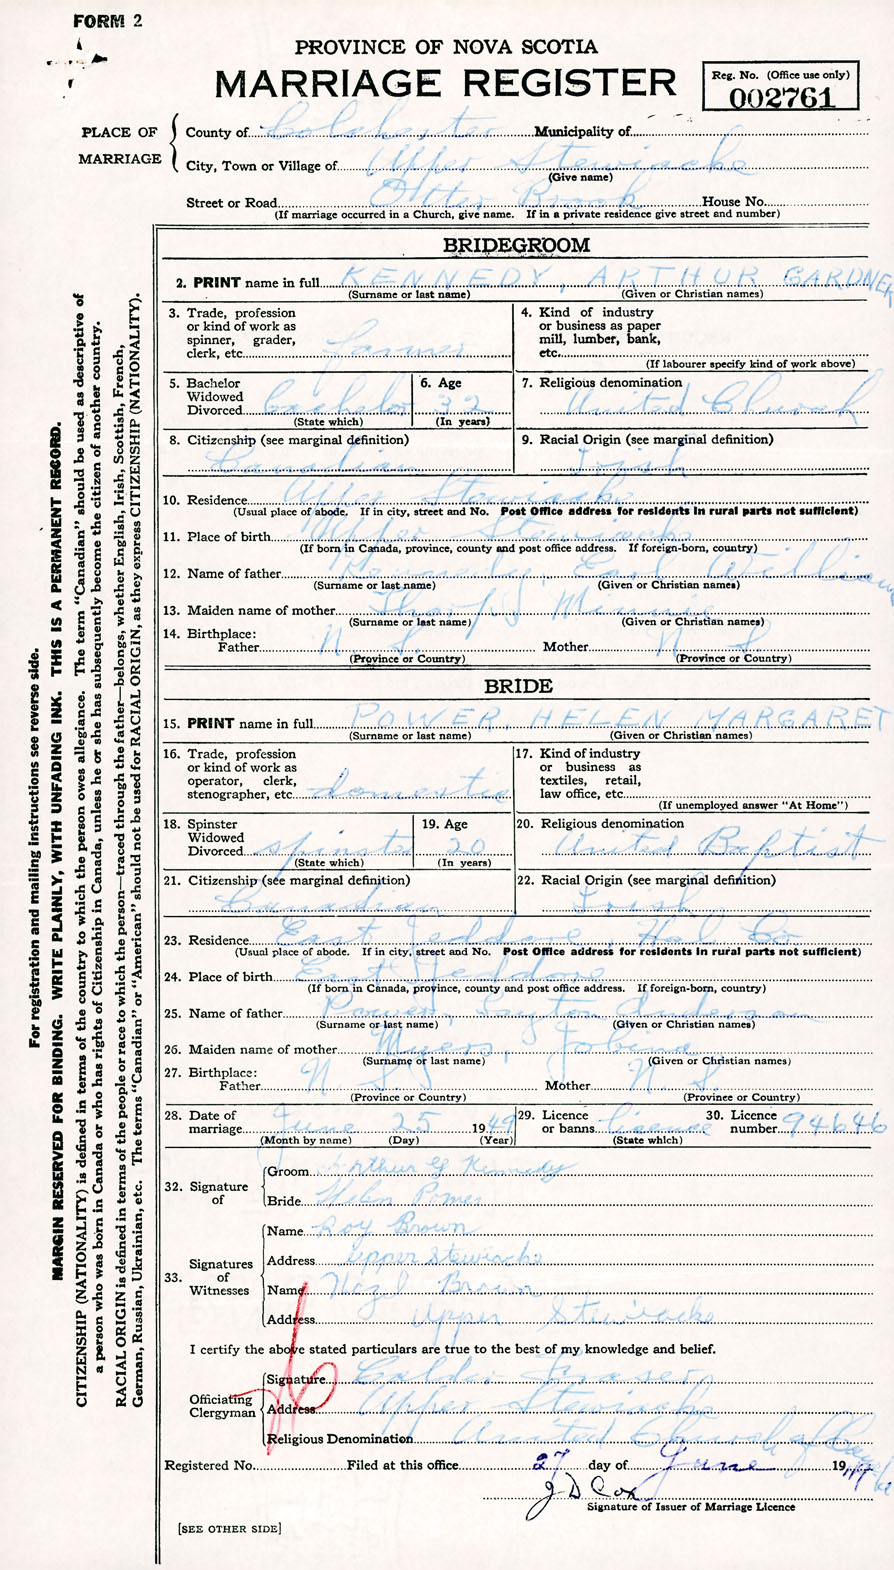 FORM 2
PROVINCE OF NOVA SCOTIA
MARRIAGE REGISTER
Reg. No. (Office use only)
002761
PLACE OF MARRIAGE
County of Colchester Municipality of
City, Town or Village of Upper Stewiacke
(Give name)
Street or Road Otter Brook House No.
(If marriage occurred in a Church, give name. If in a private residence give street and number)
BRIDEGROOM
2. PRINT name in full KENNEDY, ARTHUR GARDNER
(Surname or last name) (Given or Christian names)
3. Trade, profession or kind of work as spinner, grader, clerk, etc. farmer
4. Kind of industry or business as paper mill, lumber, bank, etc.
(If labourer specify kind of work above)
5. Bachelor Widowed Divorced bachelor
(State which)
6. Age 32
(In years)
7. Religious denomination United Church
8. Citizenship (see marginal definition) Canadian
9. Racial Origin (see marginal definition) Irish
10. Residence Upper Stewiacke
(Usual place of abode. If in city, street and No. Post Office address for residents in rural parts not sufficient)
11. Place of birth Upper Stewiacke
(If born in Canada, province, county and post office address. If foreign-born, country)
12. Name of father Kennedy, Earl William
(Surname or last name) (Given or Christian names)
13. Maiden name of mother Minnie
(Surname or last name) (Given or Christian names)
14. Birthplace:
Father N. S. Mother N. S.
(Province or Country) (Province or Country)
BRIDE
15. PRINT name in full POWER, HELEN MARGARET
(Surname or last name) (Given or Christian names)
16. Trade, profession or kind of work as operator, clerk, stenographer, etc. domestic
17. Kind of industry or business as textiles, retail, law office, etc.
(If unemployed answer "At Home")
18. Spinster Widowed Divorced spinster
(State which)
19. Age 20
(In years)
20. Religious denomination United Baptist
21. Citizenship (see marginal definition) Canadian
22. Racial Origin (see marginal definition) Irish
23. Residence East Jeddore, Hal. Co
(Usual place of abode. If in city, street and No. Post Office address for residents in rural parts not sufficient)
24. Place of birth East Jeddore
(If born in Canada, province, county and post office address. If foreign-born, country)
25. Name of father Power, Layton Anderson
(Surname or last name) (Given or Christian names)
26. Maiden name of mother Myers, Jobina
(Surname or last name) (Given or Christian names)
27. Birthplace:
Father N. S. Mother N. S.
(Province or Country) (Province or Country)
28. Date of marriage June 25 1949
(Month by name) (Day) (Year)
29. Licence or banns licence
(State which)
30. Licence number 94646
32. Signature of
Groom Arthur G Kennedy
Bride Helen Power
33. Signatures of Witnesses
Name Roy Brown
Address upper stewiacke
Name Hazel Brown
Address Upper Stewiacke
I certify the above stated particulars are true to the best of my knowledge and belief.
Officiating Clergyman
Signature Calder Fraser
Address Upper Stewiacke
Religious Denomination United Church of Canada
Registered No. Filed at this office 27 day of June 1949
J D Cox
Signature of Issuer of Marriage Licence
[SEE OTHER SIDE]
For registration and mailing instructions see reverse side.
MARGIN RESERVED FOR BINDING. WRITE PLAINLY, WITH UNFADING INK. THIS IS A PERMANENT RECORD.
CITIZENSHIP (NATIONALITY) is defined in terms of the country to which the person owes allegiance. The term "Canadian" should be used as descriptive of
a person who was born in Canada or who has rights of Citizenship in Canada, unless he or she has subsequently become the citizen of another country.
RACIAL ORIGIN is defined in terms of the people or race to which the person—traced through the father—belongs, whether English, Irish, Scottish, French,
German, Russian, Ukrainian, etc. The terms "Canadian" or "American" should not be used for RACIAL ORIGIN, as they express CITIZENSHIP (NATIONALITY).